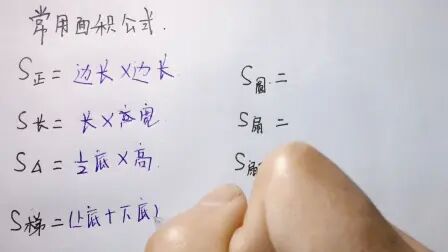 常用面积公式.
S正 = 边长×边长
S长 = 长×宽
S△ = 1/2底×高
S梯 = (上底+下底)
S圆 =
S扇 =
S扇